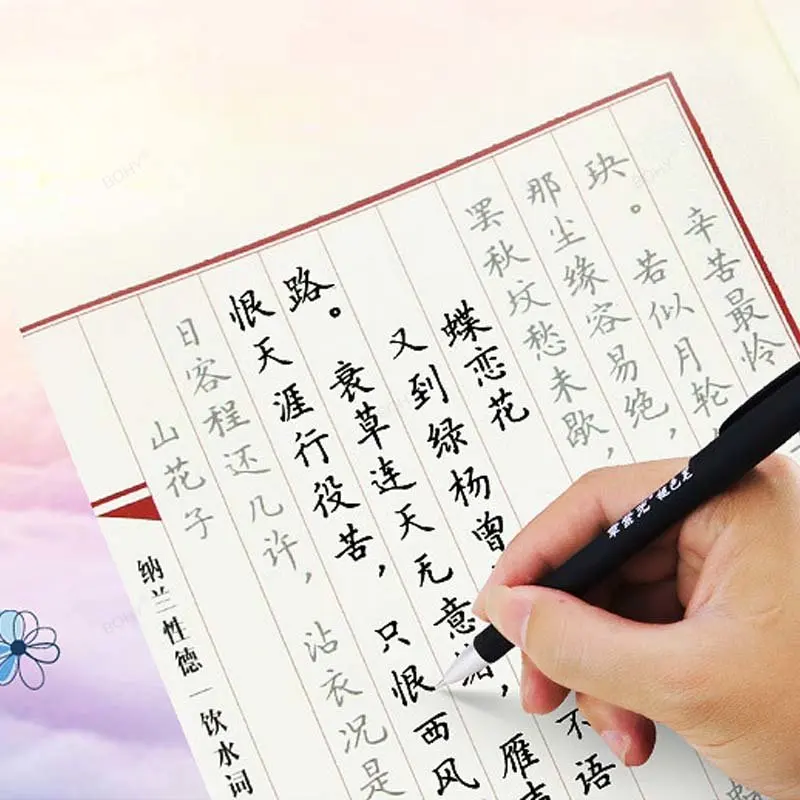 辛苦最怜
玦。若似月轮
那尘缘容易绝，
罢秋坟愁未歇，
蝶恋花
又到绿杨曾 不语
路。衰草连天无意绪，雁声
恨天涯行役苦，只恨西风
日客程还几许，沾衣况是
山花子
纳兰性德｜饮水词